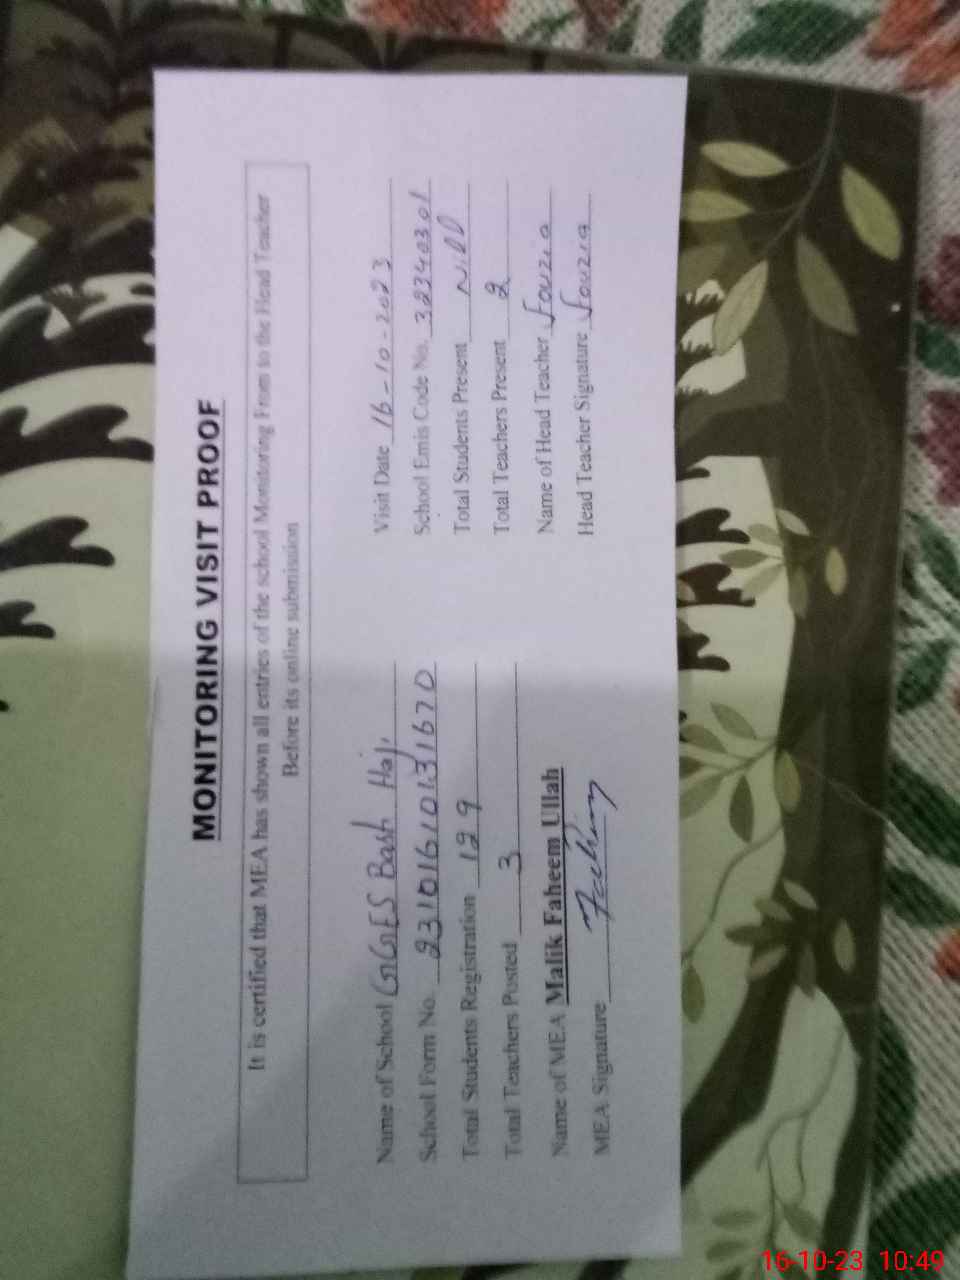 MONITORING VISIT PROOF
It is certified that MEA has shown all entries of the school Monitoring From to the Head Teacher
Before its online submission
Name of School GGES Bash Haji
Visit Date 16-10-2023
School Form No. 2310161013 1670
School Emis Code No. 32340301
Total Students Registration 129
Total Students Present Nill
Total Teachers Posted 3
Total Teachers Present 2
Name of MEA Malik Faheem Ullah
Name of Head Teacher fouzia
MEA Signature Faheem
Head Teacher Signature fouzia
16-10-23 10:49